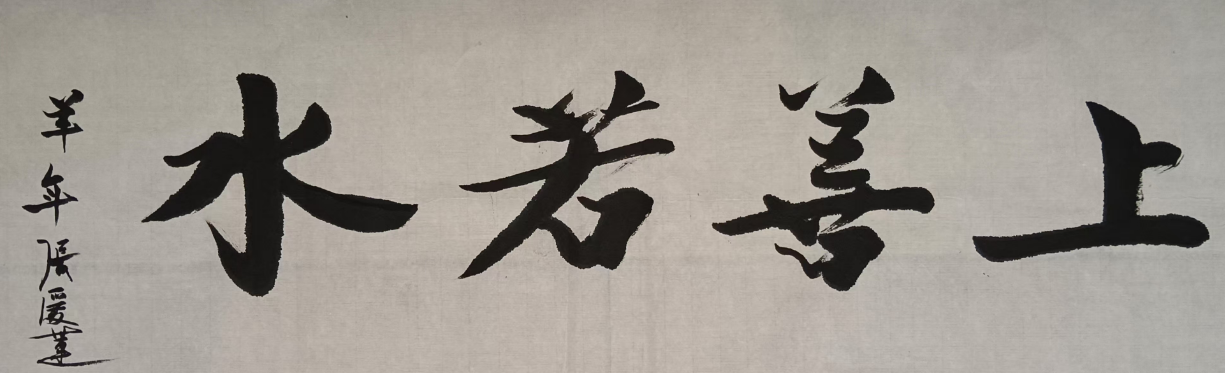 上善若水
羊年 張愛蓮